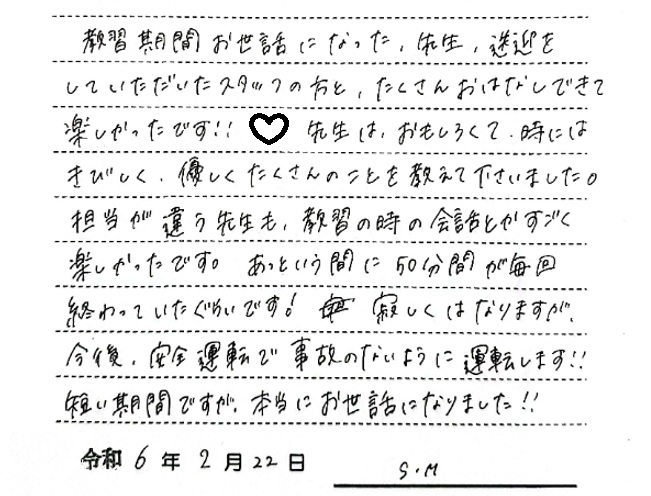 教習期間お世話になった、先生、送迎を
していただいたスタッフの方と、たくさんおはなしできて
楽しかったです!! ♡ 先生は、おもしろくて、時には
きびしく、優しくたくさんのことを教えて下さいました。
担当が違う先生も、教習の時の会話とかすごく
楽しかったです。あっという間に50分間が毎回
終わっていたぐらいです! 寂しくはなりますが、
今後、安全運転で事故のないように運転します!!
短い期間ですが、本当にお世話になりました!!
令和6年2月22日 S.M